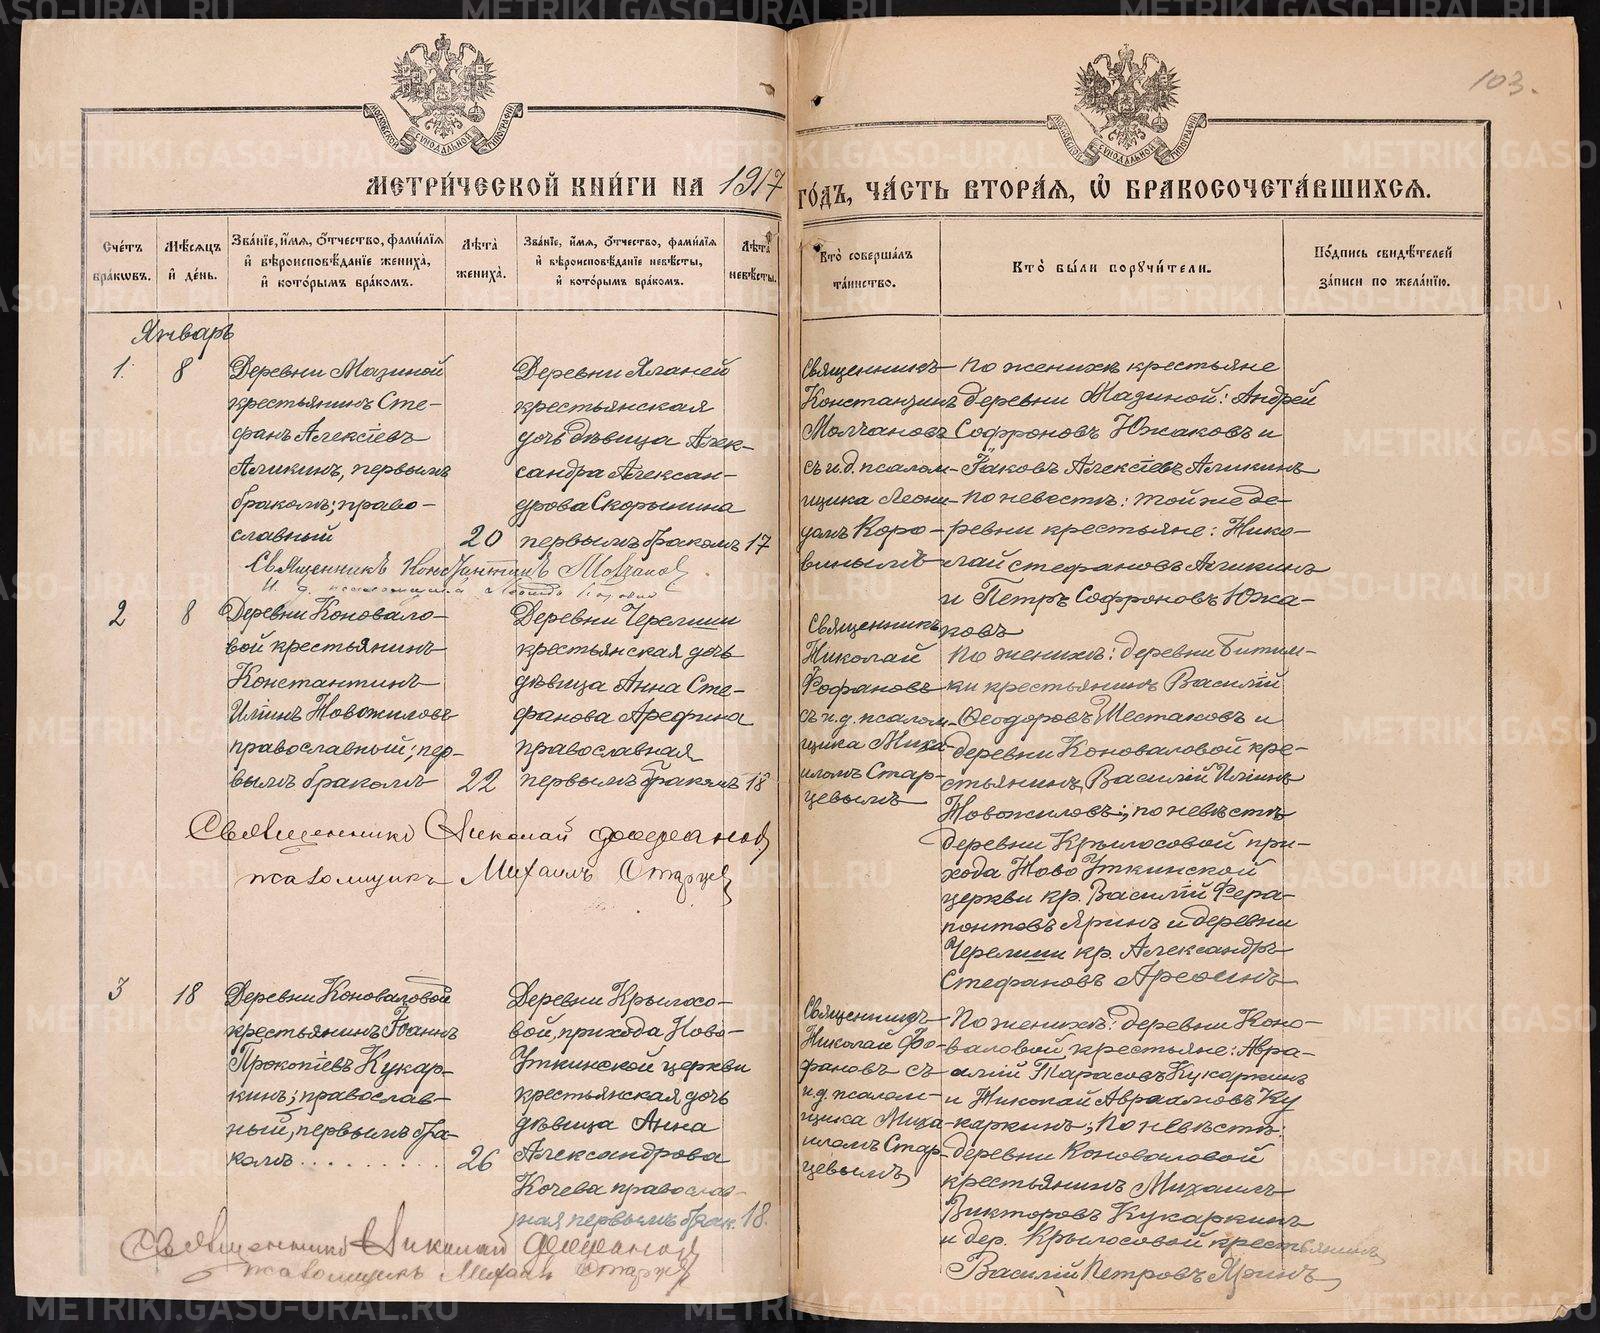 103.
МОСКОВСКОЙ СѴНОДАЛЬНОЙ ТИПОГРАФІИ
МОСКОВСКОЙ СѴНОДАЛЬНОЙ ТИПОГРАФІИ
МЕТРИ́ЧЕСКОЙ КНИ́ГИ НА 1917 ГО́ДЪ, ЧА́СТЬ ВТОРА́Я, Ѽ БРАКОСОЧЕТА́ВШИХСЯ.
Сче́тъ бра́ковъ.
Мѣ́сяцъ и҆ де́нь.
Зва́нїе, и҆́мя, ѻ҆́тчество, фами́лїя
и҆ вѣроисповѣ́данїе жениха̀,
и҆ кото́рымъ бра́комъ.
Лѣта̀ жениха̀.
Зва́нїе, и҆́мя, ѻ҆́тчество, фами́лїя
и҆ вѣроисповѣ́данїе невѣ́сты,
и҆ кото́рымъ бра́комъ.
Лѣта̀ невѣ́сты.
Кто̀ соверша́лъ
та́инство.
Кто̀ бы́ли порꙋчи́тели.
По́дпись свидѣ́телей
за́писи по жела́нїю.
Январь
1.
8
Деревни Мазиной
крестьянинъ Сте-
фанъ Алексіевъ
Аликинъ, первымъ
бракомъ; право-
славный
20
Деревни Яланей
крестьянская
дочь дѣвица Алек-
сандра Алексан-
дрова Скорынина
первымъ бракомъ
17
Священникъ
Константинъ
Молчановъ
съ и.д. псалом-
щика Леони-
домъ Коро-
винымъ
По женихѣ крестьяне
деревни Мазиной: Андрей
Софроновъ Южаковъ и
Іаковъ Алексіевъ Аликинъ
По невестѣ: той же де-
ревни крестьяне: Нико-
лай Стефановъ Аликинъ
и Петръ Софроновъ Южа-
ковъ
Священникъ Константинъ Молчановъ
И. д. псаломщика Леонидъ Коровинъ
2
8
Деревни Коновало-
вой крестьянинъ
Константинъ
Иліинъ Новожиловъ
православный; пер-
вымъ бракомъ
22
Деревни Черемши
крестьянская дочь
дѣвица Анна Сте-
фанова Арефина
православная
первымъ бракомъ
18
Священникъ
Николай
Фофановъ
съ и.д. псалом-
щика Миха-
иломъ Стар-
цевымъ
По женихѣ: деревни Битим-
ки крестьянинъ Василій
Ѳеодоровъ Шестаковъ и
деревни Коноваловой кре-
стьянинъ Василій Иліинъ
Новожиловъ; по невѣстѣ
деревни Крылосовой при-
хода Ново Уткинской
церкви кр. Василій Фера-
понтовъ Яринъ и деревни
Черемши кр. Александръ
Стефановъ Арефинъ
Священникъ Николай Фофановъ
псаломщикъ Михаилъ Старцев
3
18
Деревни Коноваловой
крестьянинъ Іоаннъ
Прокопіевъ Кукар-
кинъ; православ-
ный, первымъ бра-
комъ . . . . . . . . .
26
Деревни Крылосо-
вой, прихода Ново-
Уткинской церкви
крестьянская дочь
дѣвица Анна
Александрова
Кочева православ-
ная первымъ брак.
18.
Священникъ
Николай Фо-
фановъ съ
и.д. псалом-
щика Миха-
иломъ Стар-
цевымъ
По женихѣ: деревни Коно-
валовой крестьяне: Авра-
амій Тарасовъ Кукаркинъ
и Николай Авраамовъ Ку
каркинъ; По невѣстѣ:
деревни Коноваловой
крестьянинъ Михаилъ
Викторовъ Кукаркинъ
и дер. Крылосовой крестьянинъ
Василій Петровъ Яринъ
Священникъ Николай Фофановъ
псаломщикъ Михаилъ Старцев
METRIKI.GASO-URAL.RU